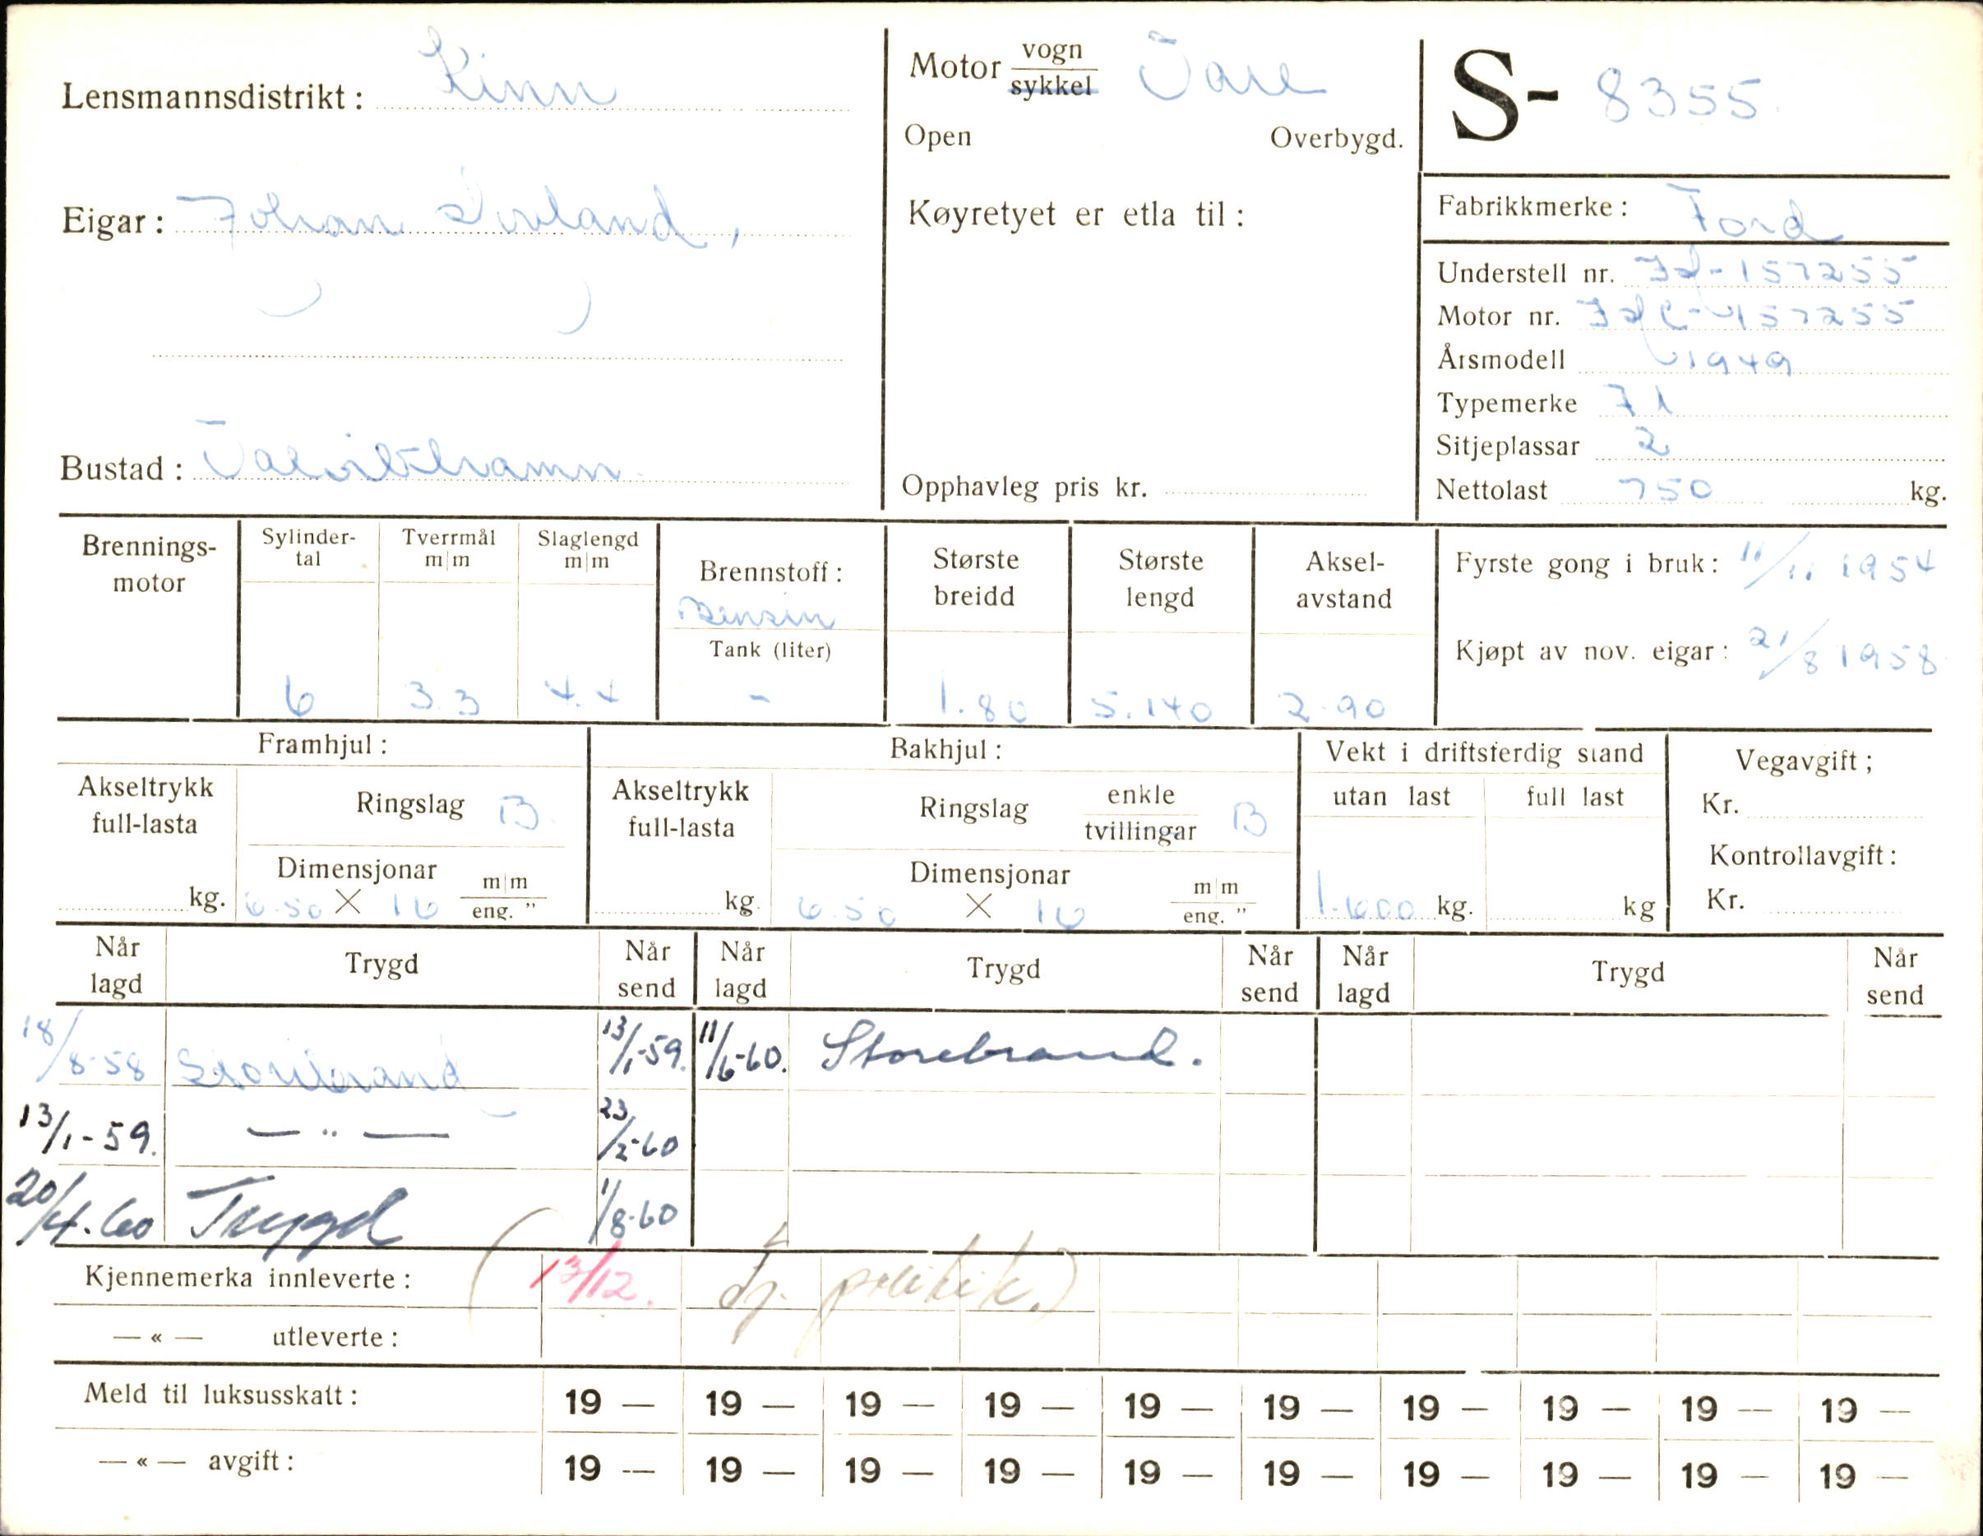 Lensmannsdistrikt: Kinn
Eigar: Johan
Bustad:
Motor vogn
sykkel
Vare
Open Overbygd.
Køyretyet er etla til:
Opphavleg pris kr.
S- 8355
Fabrikkmerke: Ford
Understell nr. 7d-157255
Motor nr. 7dc-157255
Årsmodell 1949
Typemerke 71
Sitjeplassar 2
Nettolast 750 kg.
Brennings-
motor
Sylinder-
tal
6
Tverrmål
m|m
3.3
Slaglengd
m|m
4.4
Brennstoff:
Bensin
Tank (liter)
-
Største
breidd
1.80
Største
lengd
5.140
Aksel-
avstand
2.90
Fyrste gong i bruk: 11/11 1954
Kjøpt av nov. eigar: 21/8 1958
Framhjul:
Akseltrykk
full-lasta
kg.
Ringslag B
Dimensjonar m|m
6.50 X 16 eng. "
Bakhjul:
Akseltrykk
full-lasta
kg.
Ringslag enkle
tvillingar B
Dimensjonar m|m
6.50 X 16 eng. "
Vekt i driftsferdig stand
utan last full last
1.600 kg. kg
Vegavgift;
Kr.
Kontrollavgift:
Kr.
Når
lagd Trygd Når
send Når
lagd Trygd Når
send Når
lagd Trygd Når
send
18/8-58 Storebrand 13/1-59. 11/6-60. Storebrand.
13/1-59. — " — 23/2-60
20/4-60 Trygd 1/8-60
Kjennemerka innleverte: ( 13/12. politik.)
— « — utleverte:
Meld til luksusskatt: 19 — 19 — 19 — 19 — 19 — 19 — 19 — 19 — 19 — 19 —
— « — avgift: 19 — 19 — 19 — 19 — 19 — 19 — 19 — 19 — 19 — 19 —